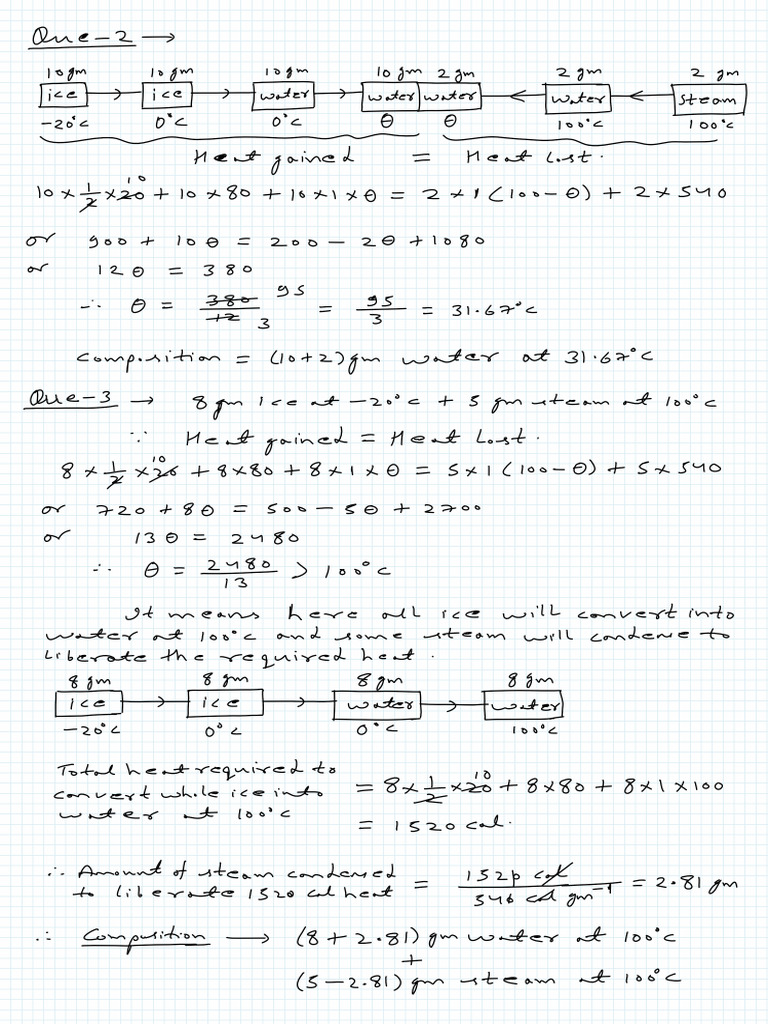 Que-2 →
10gm 10gm 10gm 10 gm 2 gm 2 gm 2 gm
ice → ice → water → water water ← water ← steam
-20°c 0°c 0°c θ θ 100°c 100°c
Heat gained = Heat Lost.
10 × 1/2 × 20 10 + 10 × 80 + 10 × 1 × θ = 2 × 1 (100 - θ) + 2 × 540
or 900 + 10θ = 200 - 2θ + 1080
or 12θ = 380
∴ θ = 380/12 95/3 = 95/3 = 31.67°c
Composition = (10+2)gm water at 31.67°c
Que-3 → 8gm ice at -20°c + 5 gm steam at 100°c
∵ Heat gained = Heat Lost.
8 × 1/2 × 20 10 + 8×80 + 8×1×θ = 5×1(100-θ) + 5×540
or 720 + 8θ = 500 - 5θ + 2700
or 13θ = 2480
∴ θ = 2480/13 > 100°c
It means here all ice will convert into
water at 100°c and some steam will condense to
liberate the required heat.
8 gm 8 gm 8 gm 8 gm
ice → ice → water → water
-20°c 0°c 0°c 100°c
Total heat required to
convert while ice into
water at 100°c
= 8 × 1/2 × 20 10 + 8×80 + 8×1×100
= 1520 cal.
∴ Amount of steam condensed
to liberate 1520 cal heat
= 1520 cal/540 cal gm⁻¹ = 2.81 gm
∴ Composition → (8 + 2.81) gm water at 100°c
+
(5 - 2.81) gm steam at 100°c